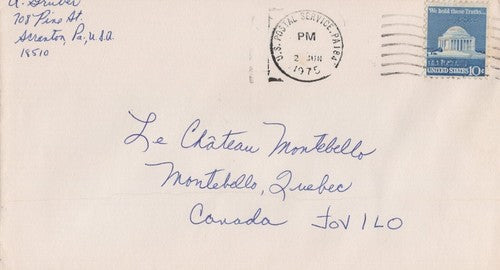 A. Gruber
708 Pine St.
Scranton, Pa, U.S.A.
18510
U.S. POSTAL SERVICE, PA 184
PM
2 JUN
1975
We hold these Truths...
UNITED STATES 10c
Le Château Montebello
Montebello, Quebec
Canada JOV 1LO